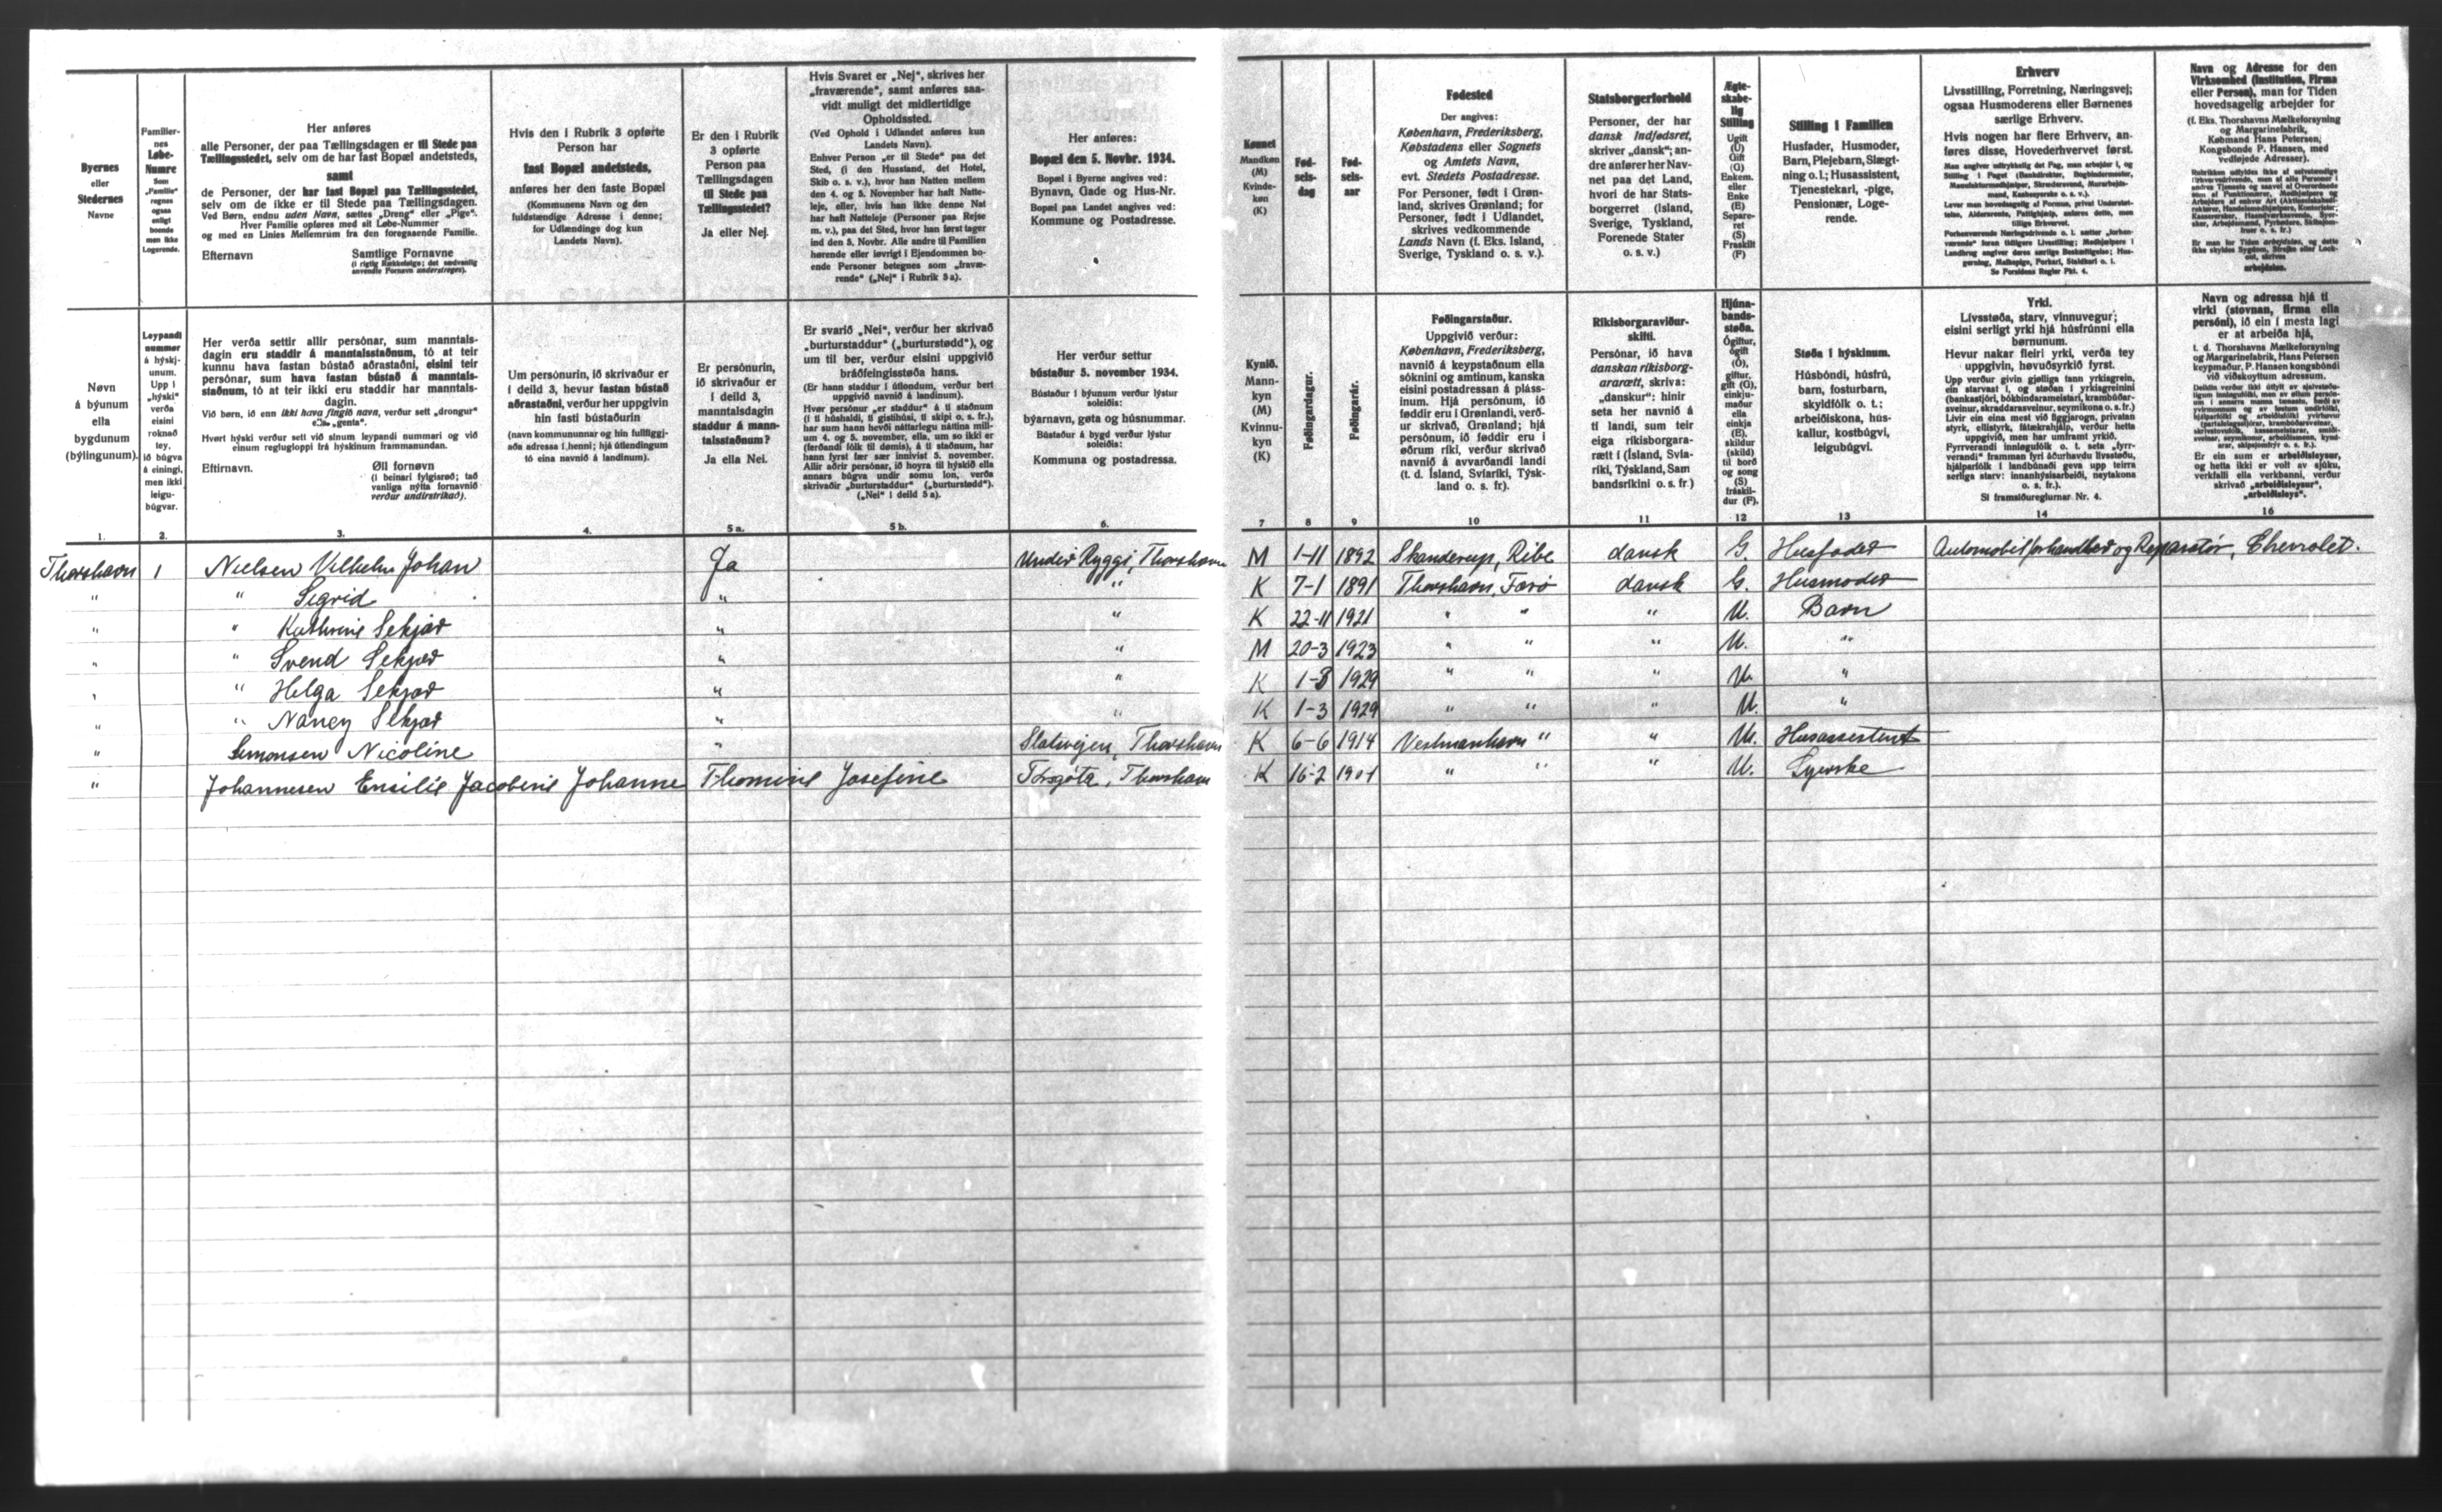 Byernes
eller
Stedernes
Navne
Familier-
nes
Løbe-
Numre
Som
„Familie"
regnes
ogsaa
enligt
boende
men ikke
Logerende.
Her anføres
alle Personer, der paa Tællingsdagen er til Stede paa
Tællingsstedet, selv om de har fast Bopæl andetsteds,
samt
de Personer, der har fast Bopæl paa Tællingsstedet,
selv om de ikke er til Stede paa Tællingsdagen.
Ved Børn, endnu uden Navn, sættes „Dreng" eller „Pige".
Hver Familie opføres med sit Løbe-Nummer
og med en Linies Mellemrum fra den foregaaende Familie.
Efternavn Samtlige Fornavne
(i rigtig Rækkefølge; det sædvanlig
anvendte Fornavn understreges).
Hvis den i Rubrik 3 opførte
Person har
fast Bopæl andetsteds,
anføres her den faste Bopæl
(Kommunens Navn og den
fuldstændige Adresse i denne;
for Udlændinge dog kun
Landets Navn).
Er den i Rubrik
3 opførte
Person paa
Tællingsdagen
til Stede paa
Tællingsstedet?
Ja eller Nej.
Hvis Svaret er „Nej", skrives her
„fraværende", samt anføres saa-
vidt muligt det midlertidige
Opholdssted.
(Ved Ophold i Udlandet anføres kun
Landets Navn).
Enhver Person „er til Stede" paa det
Sted, (i den Husstand, det Hotel,
Skib o. s. v.), hvor han Natten mellem
den 4. og 5. November har haft Natte-
leje, eller, hvis han ikke denne Nat
har haft Natteleje (Personer paa Rejse
m. v.), paa det Sted, hvor han først tager
ind den 5. Novbr. Alle andre til Familien
hørende eller iøvrigt i Ejendommen bo-
ende Personer betegnes som „fravæ-
rende" („Nej" i Rubrik 5a).
Her anføres:
Bopæl den 5. Novbr. 1934.
Bopæl i Byerne angives ved:
Bynavn, Gade og Hus-Nr.
Bopæl paa Landet angives ved:
Kommune og Postadresse.
Kønnet
Mandkøn
(M)
Kvinde-
køn
(K)
Fød-
sels-
dag
Fød-
sels-
aar
Fødested
Der angives:
København, Frederiksberg,
Købstadens eller Sognets
og Amtets Navn,
evt. Stedets Postadresse.
For Personer, født i Grøn-
land, skrives Grønland; for
Personer, født i Udlandet,
skrives vedkommende
Lands Navn (f. Eks. Island,
Sverige, Tyskland o. s. v.).
Statsborgerforhold
Personer, der har
dansk Indfødsret,
skriver „dansk"; an-
dre anfører her Nav-
net paa det Land,
hvori de har Stats-
borgerret (Island,
Sverige, Tyskland,
Forenede Stater
o. s. v.)
Ægte-
skabe-
lig
Stilling
Ugift
(U)
Gift
(G)
Enkem.
eller
Enke
(E)
Separe-
ret
(S)
Fraskilt
(F)
Stilling i Familien
Husfader, Husmoder,
Barn, Plejebarn, Slægt-
ning o.l.; Husassistent,
Tjenestekarl, -pige,
Pensionær, Loge-
rende.
Erhverv
Livsstilling, Forretning, Næringsvej;
ogsaa Husmoderens eller Børnenes
særlige Erhverv.
Hvis nogen har flere Erhverv, an-
føres disse, Hovederhvervet først.
Se Forsidens Regler Pkt. 4.
Navn og Adresse for den
Virksomhed (Institution, Firma
eller Person), man for Tiden
hovedsagelig arbejder for
(f. Eks. Thorshavns Mælkeforsyning
og Margarinefabrik,
Købmand Hans Petersen,
Kongsbonde P. Hansen, med
vedføjede Adresser).
arbejdsløs.
Nøvn
á býunum
ella
bygdunum
(býlingunum).
Leypandi
nummer
á hýskj-
unum.
Upp í
„hýski"
verða
eisini
roknað
tey,
ið búgva
á eining,
men ikki
leigu-
búgvar.
Her verða settir allir persónar, sum manntals-
dagin eru staddir á manntalsstaðnum, tó at teir
kunnu hava fastan bústað aðrastaðni, eisini teir
persónar, sum hava fastan bústað á manntals-
staðnum, tó at teir ikki eru staddir har manntals-
dagin.
Við børn, ið enn ikki hava fingið navn, verður sett „drongur"
ella „genta".
Hvørt hýski verður sett við sínum leypandi nummari og við
einum reglugloppi frá hýskinum frammanundan.
Eftirnavn. Øll fornøvn
(í beinari fylgisrøð; tað
vanliga nýtta fornavnið
verður undirstrikað).
Um persónurin, ið skrivaður er
í deild 3, hevur fastan bústað
aðrastaðni, verður her uppgivin
hin fasti bústaðurin
(navn kommununnar og hin fullfíggj-
aða adressa í henni; hjá útlendingum
tó eina navnið á landinum).
Er persónurin,
ið skrivaður er
í deild 3,
manntalsdagin
staddur á mann-
talsstaðnum?
Ja ella Nei.
Er svarið „Nei", verður her skrivað
„burturstaddur" („burturstødd"), og
um til ber, verður eisini uppgivið
bráðfeingisstøða hans.
(Er hann staddur í útlondum, verður bert
uppgivið navnið á landinum).
Her verður settur
bústaður 5. november 1934.
Bústaður í býunum verður lýstur
soleiðis:
býarnavn, gøta og húsnummar.
Bústaður á bygd verður lýstur
soleiðis:
Kommuna og postadressa.
Kynið.
Mann-
kyn
(M)
Kvinnu-
kyn
(K)
Føðingardagur.
Føðingarár.
Føðingarstaður.
Uppgivið verður:
København, Frederiksberg,
navnið á keypstaðnum ella
sóknini og amtinum, kanska
eisini postadressan á pláss-
inum. Hjá persónum, ið
føddir eru í Grønlandi, verð-
ur skrivað, Grønland; hjá
persónum, ið føddir eru í
øðrum ríki, verður skrivað
navnið á avvarðandi landi
(t. d. Ísland, Svíaríki, Týsk-
land o. s. fr).
Ríkisborgaraviður-
skifti.
Persónar, ið hava
danskan ríkisborg-
ararætt, skriva:
„danskur"; hinir
seta her navnið á
tí landi, sum teir
eiga ríkisborgara-
rætt í (Ísland, Svía-
ríki, Týskland, Sam
bandsríkini o. s. fr.)
Hjúna-
bands-
støða.
Ógiftur,
ógift
(Ó),
giftur,
gift (G),
einkju-
maður
ella
einkja
(E),
skildur
(skild)
til borð
og song
(S)
fráskil-
dur (F).
Støða í hýskinum.
Húsbóndi, húsfrú,
barn, fosturbarn,
skyldfólk o. t.;
arbeiðiskona, hús-
kallur, kostbúgvi,
leigubúgvi.
Yrki.
Livsstøða, starv, vinnuvegur;
eisini serligt yrki hjá húsfrúnni ella
børnunum.
Hevur nakar fleiri yrki, verða tey
uppgivin, høvuðsyrkið fyrst.
Sí framsíðureglurnar Nr. 4.
Navn og adressa hjá tí
virki (stovnan, firma ella
persóni), ið ein í mesta lagi
er at arbeiða hjá,
t. d. Thorshavns Mælkeforsyning
og Margarinefabrik, Hans Petersen
keypmaður, P. Hansen kongsbóndi
við viðskoyttum adressum.
Er ein sum er arbeiðsleysur,
og hetta ikki er volt av sjúku,
verkfalli ella verkbanni, verður
skrivað „arbeiðsleysur",
„arbeiðsleys".
1. 2. 3. 4. 5a. 5b. 6. 7 8 9 10 11 12 13 14 16
Thorshavn 1 Nielsen Vilhelm Johan Ja Undir Ryggi, Thorshavn M 1-11 1892 Skanderup, Ribe dansk G. Husfader Automobilforhandler og Reparatør, Chevrolet.
" " Sigrid " " K 7-1 1891 Thorshavn, Færø dansk G. Husmoder
" " Kathrine Sekjær " " K 22-11 1921 " " " U. Barn
" " Svend Sekjær " " M 20-3 1923 " " " U. "
" " Helga Sekjær " " K 1-3 1929 " " " U. "
" " Nancy Sekjær " " K 1-3 1929 " " " U. "
" Simonsen Nicoline " Slotsvejen, Thorshavn K 6-6 1914 Vestmanhavn " " U. Husassistent
" Johannesen Emilie Jacobine Johanne Thomine Josefine Torsgöta, Thorshavn K 16-2 1901 " " " U. Syerske